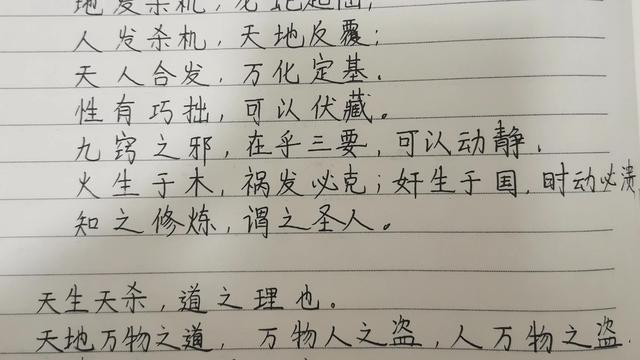 地发杀机，龙蛇起陆；
人发杀机，天地反覆；
天人合发，万化定基．
性有巧拙，可以伏藏。
九窍之邪，在乎三要，可以动静．
火生于木，祸发必克；奸生于国，时动必溃
知之修炼，谓之圣人。
天生天杀，道之理也。
天地万物之道，万物人之盗，人万物之盗．